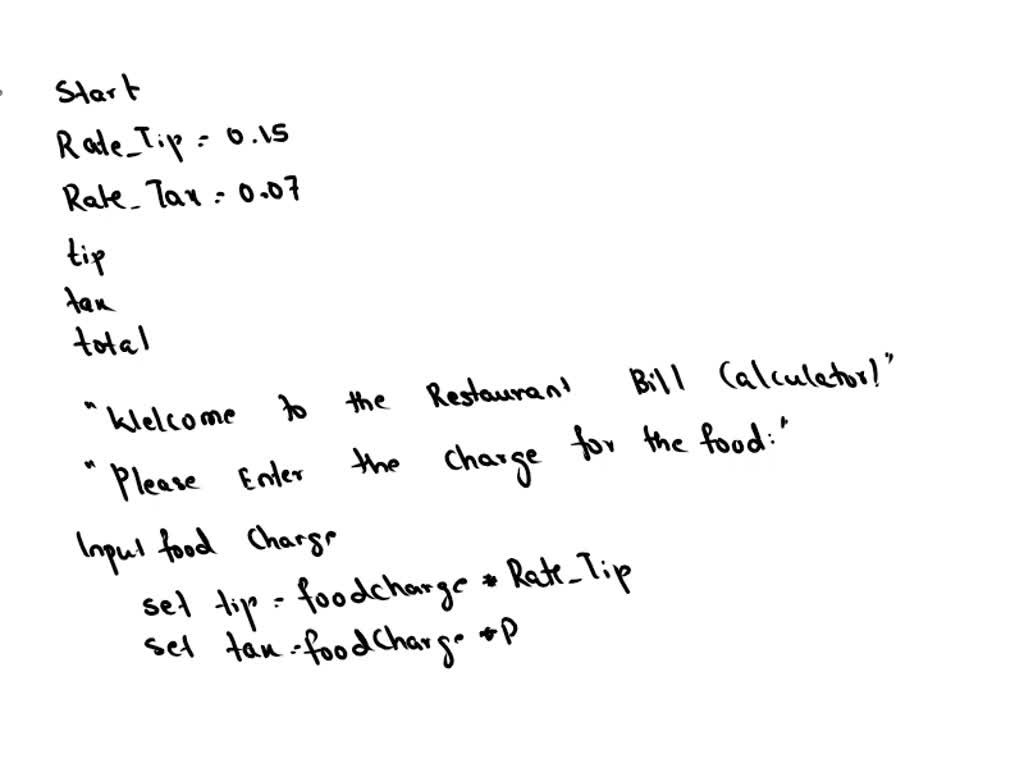 Start
Rate_Tip = 0.15
Rate_Tax = 0.07
tip
tax
total
"Welcome to the Restaurant Bill Calculator!"
"Please Enter the charge for the food:"
Input food Charge
set tip = foodcharge * Rate_Tip
set tax = foodCharge * P